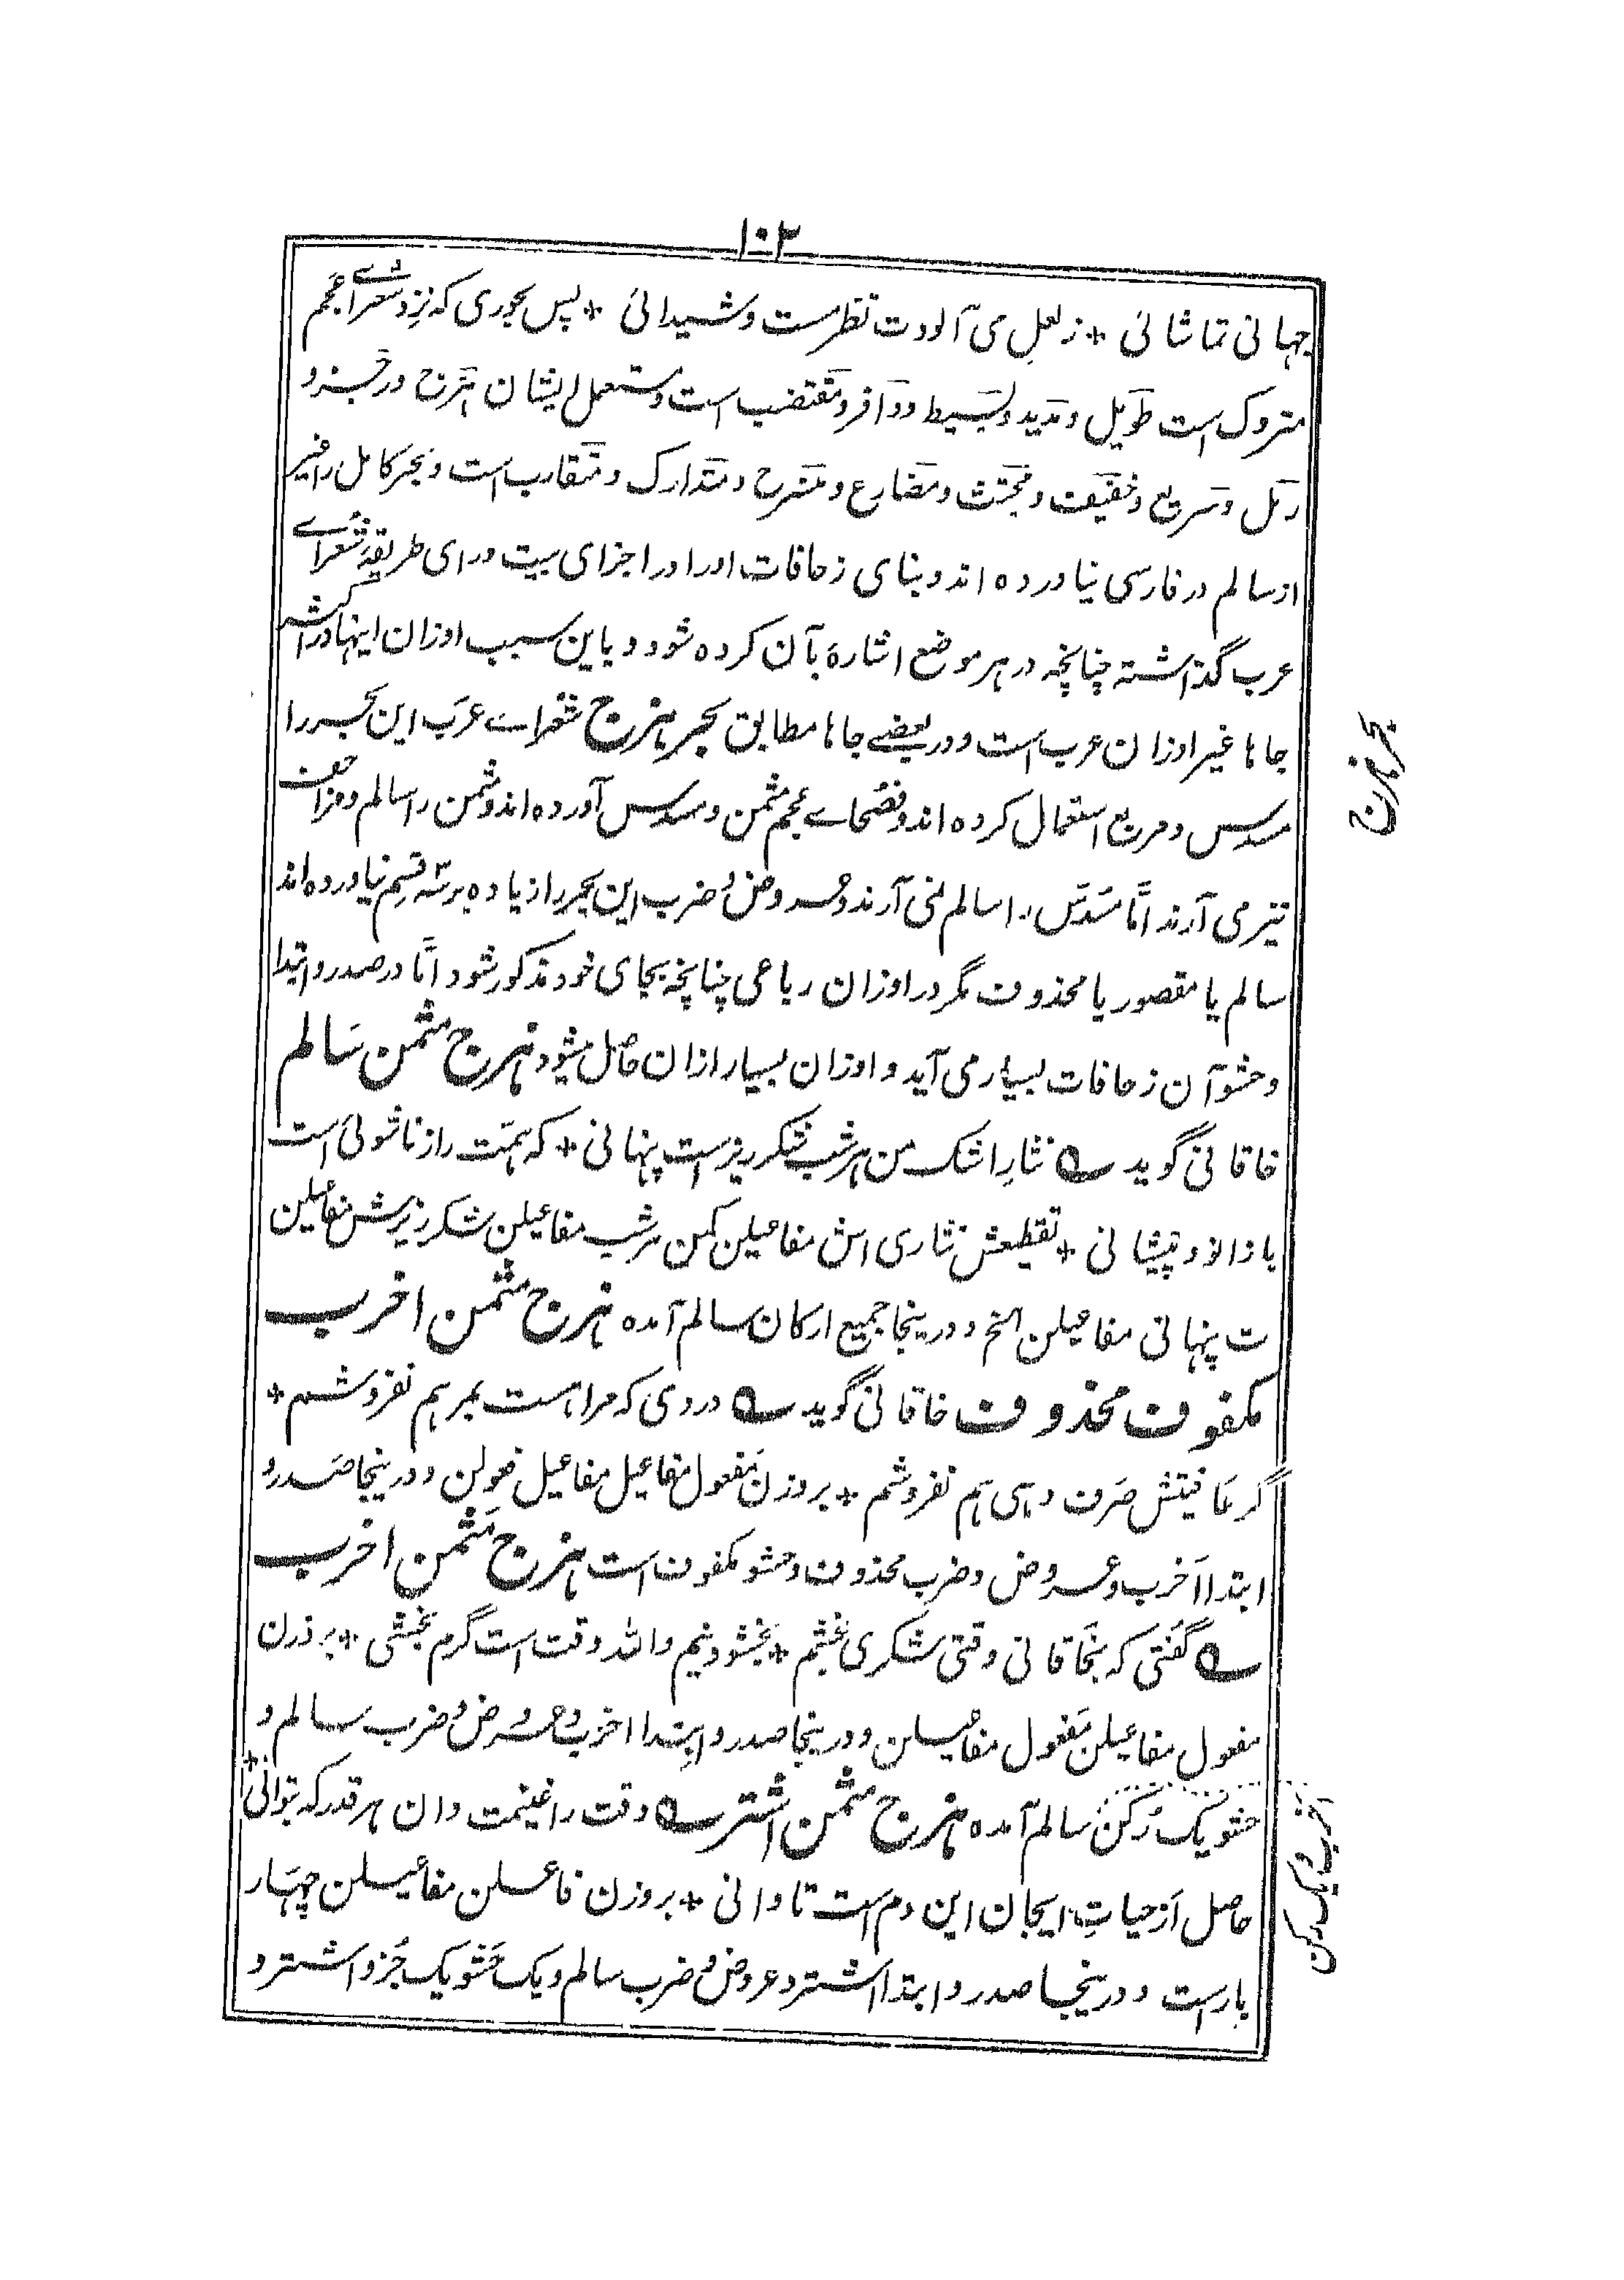 ۱۰۲
جهانی تماشائی + ز لعلِ می آلودت نظر مست و شیدائی + پس بحوری که نزد شعرائے عجم
متروک است طویل و مدید و بسیط و وافر و مقتضب است و مستعمل ایشان هزج و رجز و
رمل و سریع و خفیف و مجتث و مضارع و منسرح و متدارک و متقارب است و بحر کامل را غیر
از سالم در فارسی نیاورده اند و بنای زحافات او را در اجزای بیت ورای طریقهٔ شعراے
عرب گذاشته چنانچه در هر موضع اشاره بآن کرده شود و باین سبب اوزان اینها در اکثر
جاها غیر اوزان عرب است و در بعضے جاها مطابق بحر هزج شعراے عرب این بحر را
مسدس و مربع استعمال کرده اند و فصحاے عجم مثمن و مسدس آورده اند و مثمن را سالم و مزاحف
نیز می آرند امّا مسدّس را سالم نمی آرند و عروض و ضرب این بحر را زیاده بر سه قسم نیاورده اند
سالم یا مقصور یا محذوف مگر در اوزان رباعی چنانچه بجای خود مذکور شود امّا در صدر و ابتدا
و حشو آن زحافات بسیار می آید و اوزان بسیار ازان حاصل میشود هزج مثمن سالم
خاقانی گوید ؎ نثارِ اشک من هر شب شکر ریزست پنهانی + که همّت را زناشوئی است
با زانو و پیشانی + تقطیعش نثاری اش مفاعیلن کمن هر شب مفاعیلن شکر ریزش مفاعیلن
ت پنهانی مفاعیلن الخ و درینجا جمیع ارکان سالم آمده هزج مثمن اخرب
مکفوف محذوف خاقانی گوید ؎ دردی که مرا هست بمرهم نفروشم +
گر عافیتش صرف دهی هم نفروشم + بر وزن مفعول مفاعیل مفاعیل فعولن و درینجا صدر و
ابتدا اخرب و عروض و ضرب محذوف و حشو مکفوف است هزج مثمن اخرب
؎ گفتی که بخاقانی وقتی شکری بخشم + بخشودنیم والله وقت است گرم بخشی + بر وزن
مفعول مفاعیلن مفعول مفاعیلن و درینجا صدر و ابتدا اخرب و عروض و ضرب سالم و
حشو یک رکن سالم آمده هزج مثمن اشتر ؎ وقت را غنیمت دان هر قدر که بتوانی +
حاصل از حیات ایجان این دم است تا دانی + بر وزن فاعلن مفاعیلن چهار
بار است و درینجا صدر و ابتدا اشتر و عروض و ضرب سالم و یک حشو یک جزو اشتر و
بحر هزج
اخرب و یک رکن